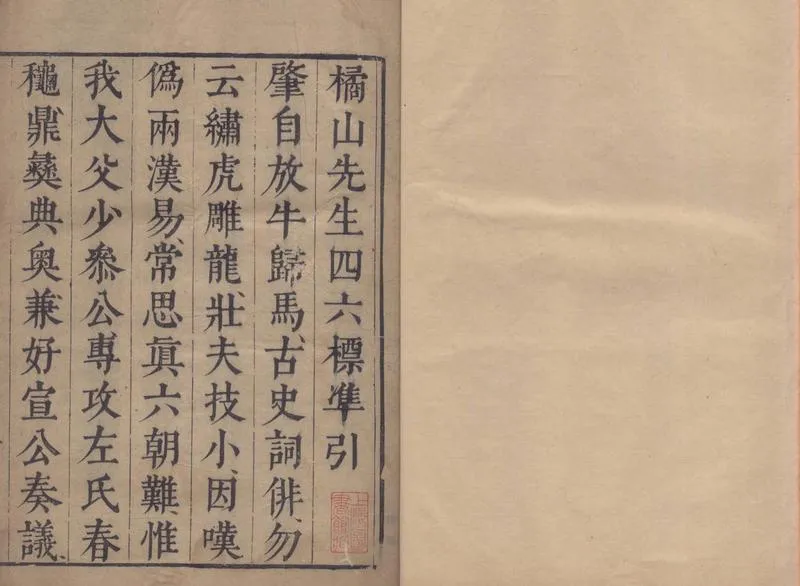 橘山先生四六標準引
肇自放牛歸馬、古史詞俳、勿
云繡虎雕龍、壯夫技小、因嘆
偽兩漢易、常思眞六朝難、惟
我大父少叅公專攻左氏春
龝、鼎彝典奥、兼好宣公奏議、